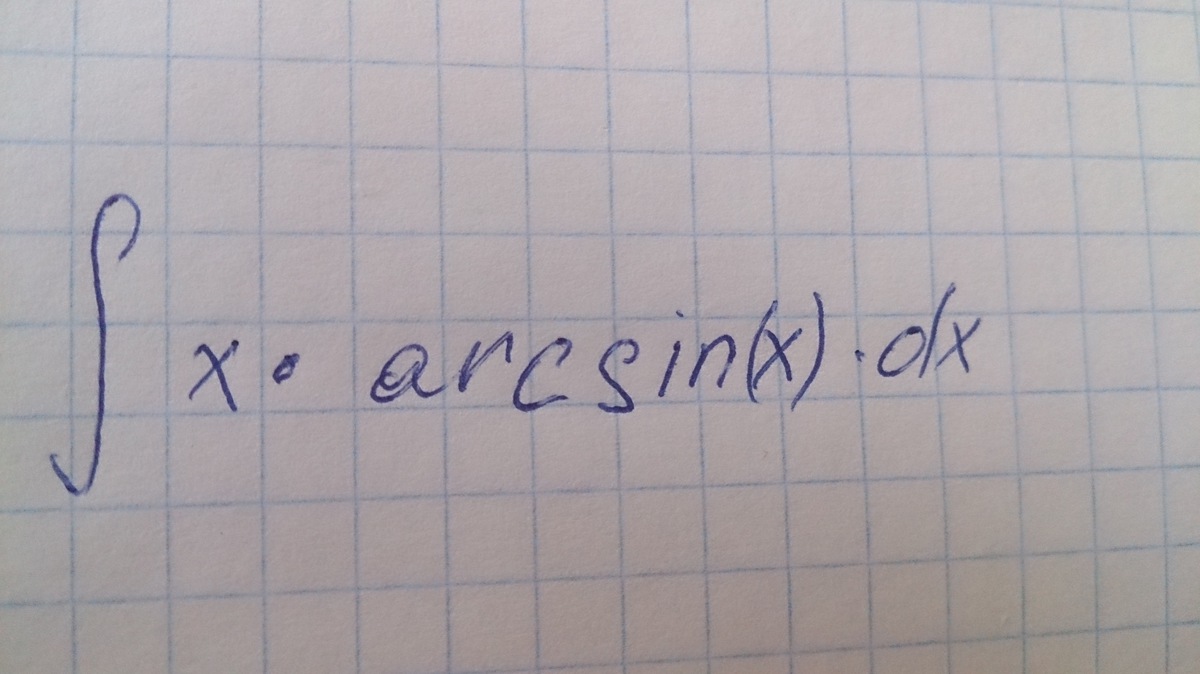 ∫ x · arcsin(x) · dx